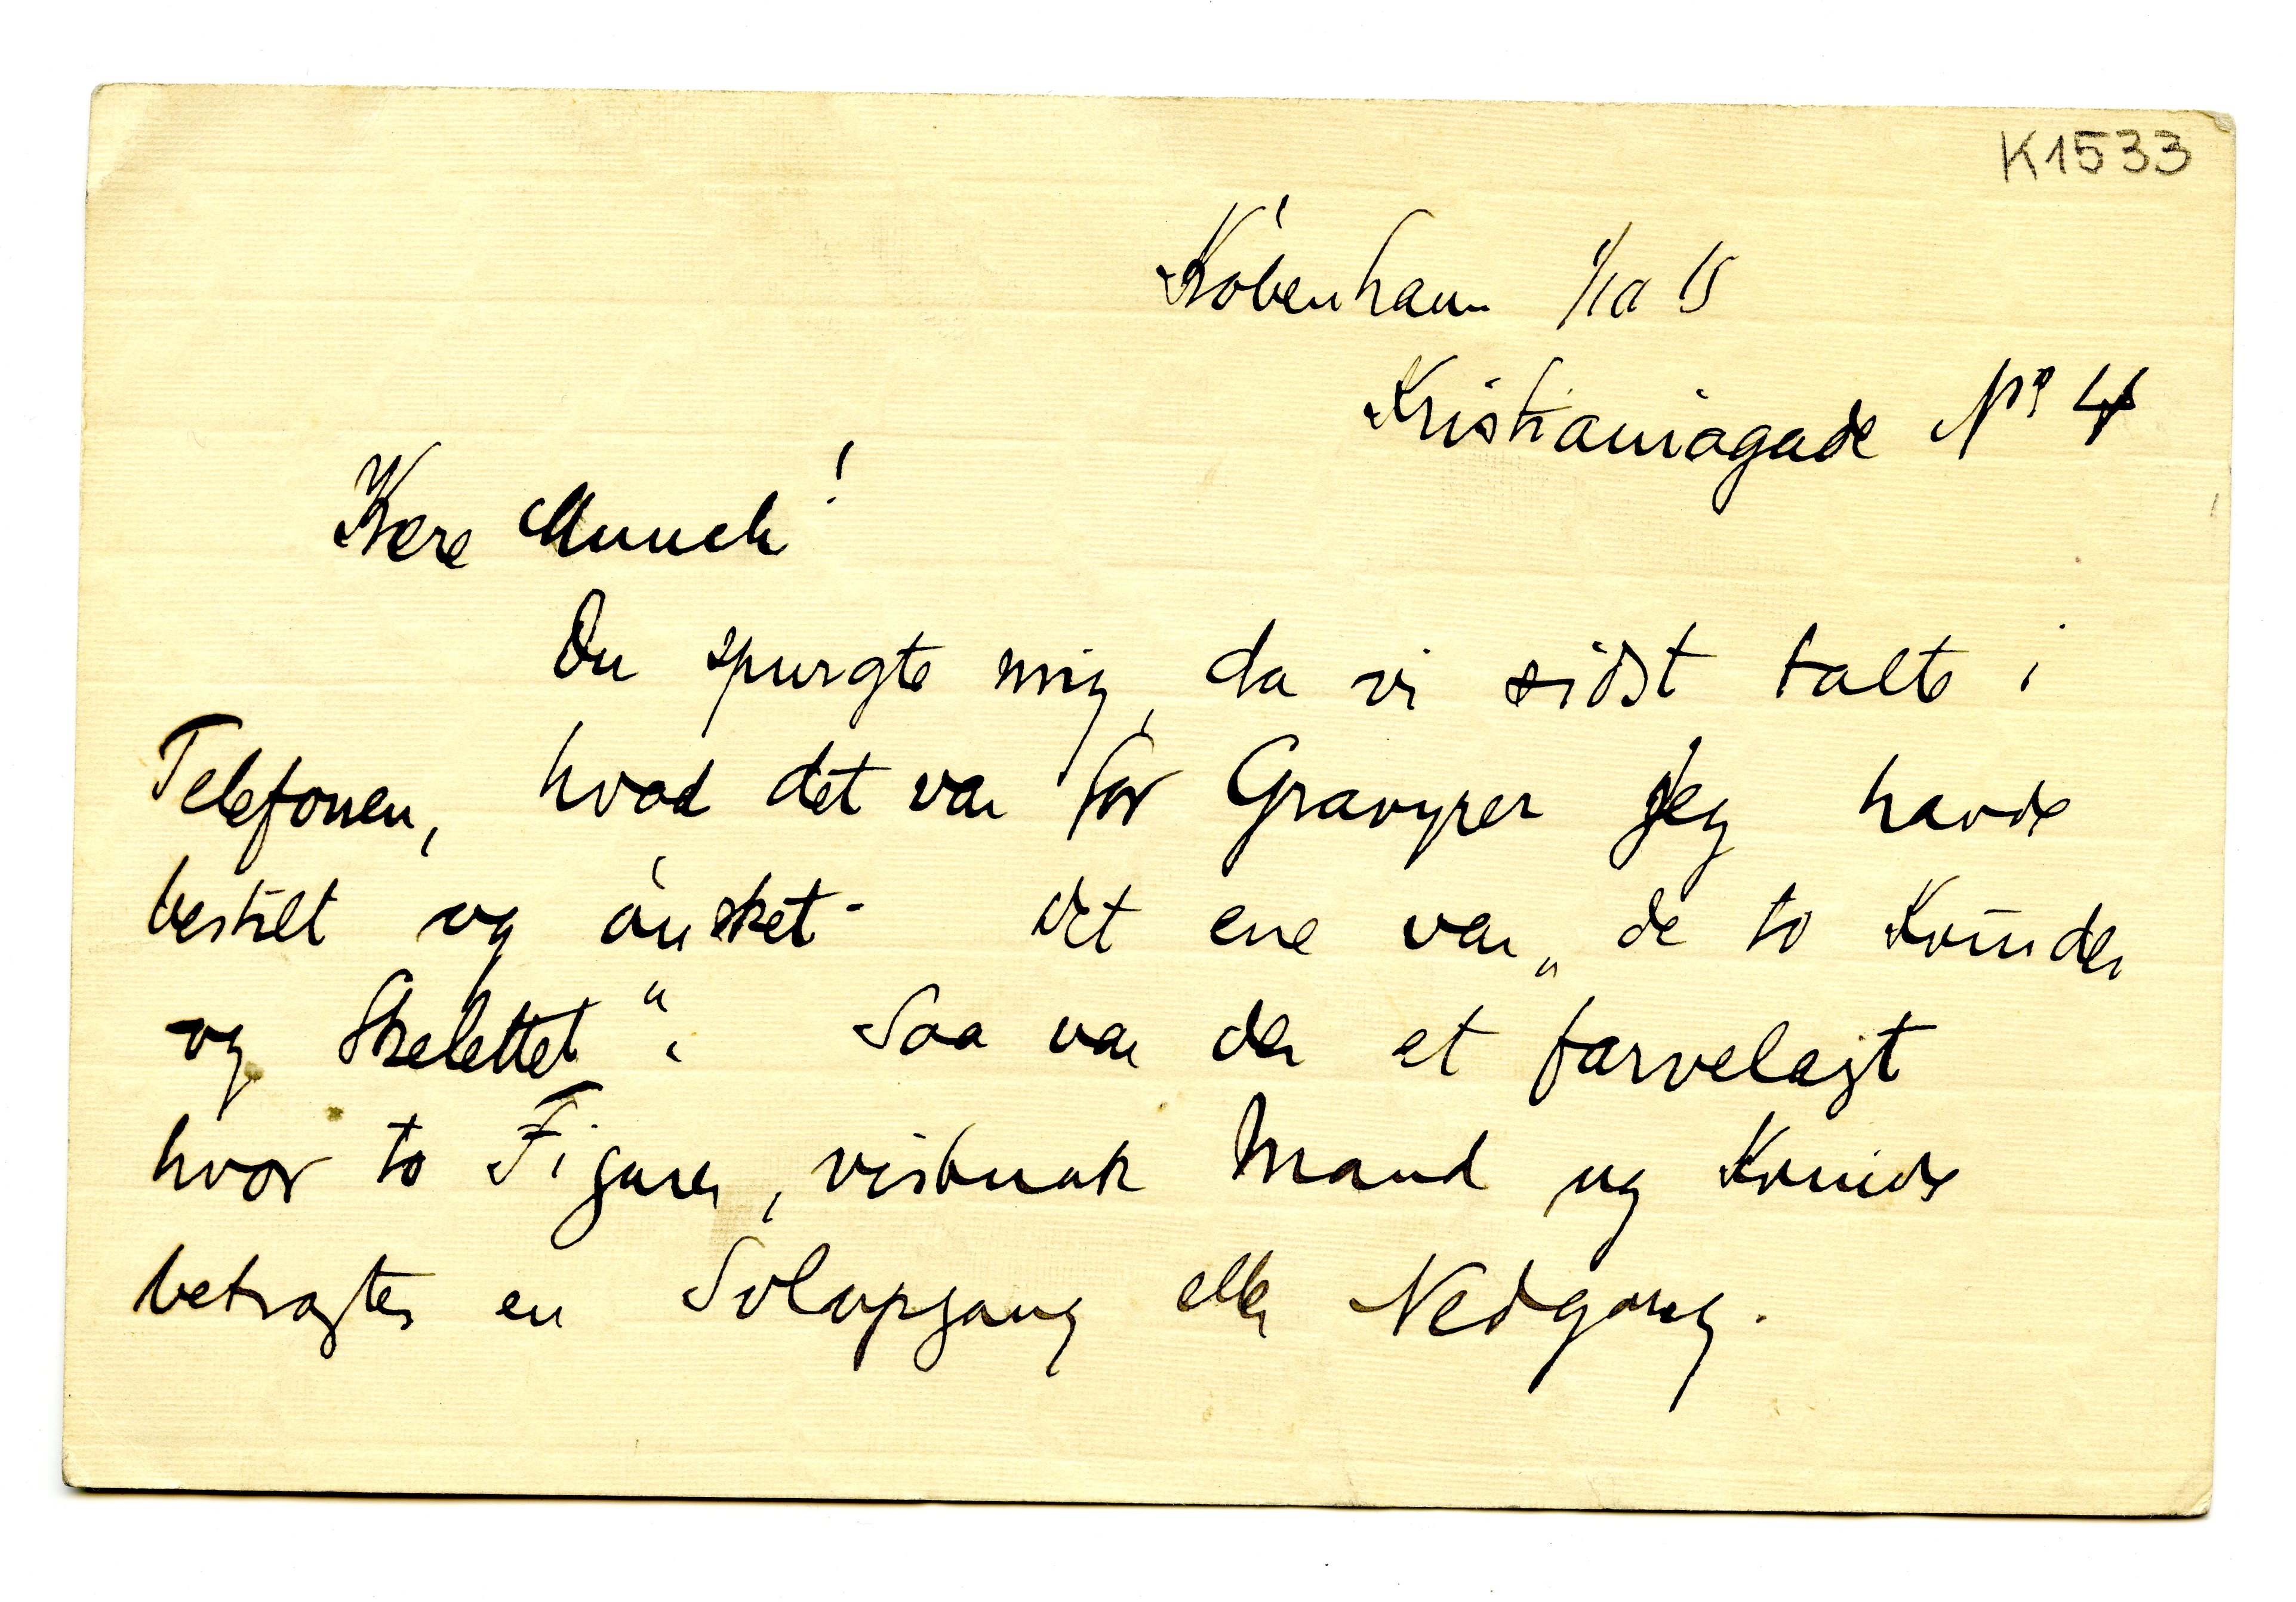 K1533
København 1/10 15
Kristianiagade Nº 4
Kære Munch!
Du spurgte mig, da vi sidst talte i
Telefonen, hvad det var for Gravyrer jeg havde
bestilt og ønsket - Det ene var „de to Kvinder
og Skelettet“. Saa var der et farvelagt
hvor to Figurer, vistnok Mand og Kvinde
betragter en Solopgang eller Nedgang.